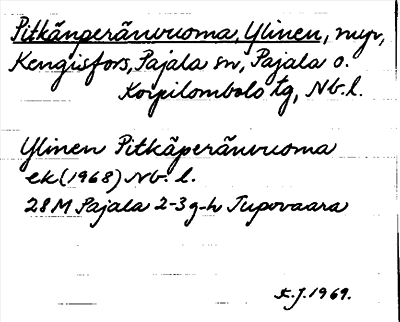 Pitkänperänvuoma, Ylinen, myr,
Kengisfors, Pajala sn, Pajala o.
Korpilombolo tg, Nb. l.
Ylinen Pitkäperänvuoma
ek (1968) Nb. l.
28M Pajala 2-3 g-h Jupovaara
K.J. 1969.